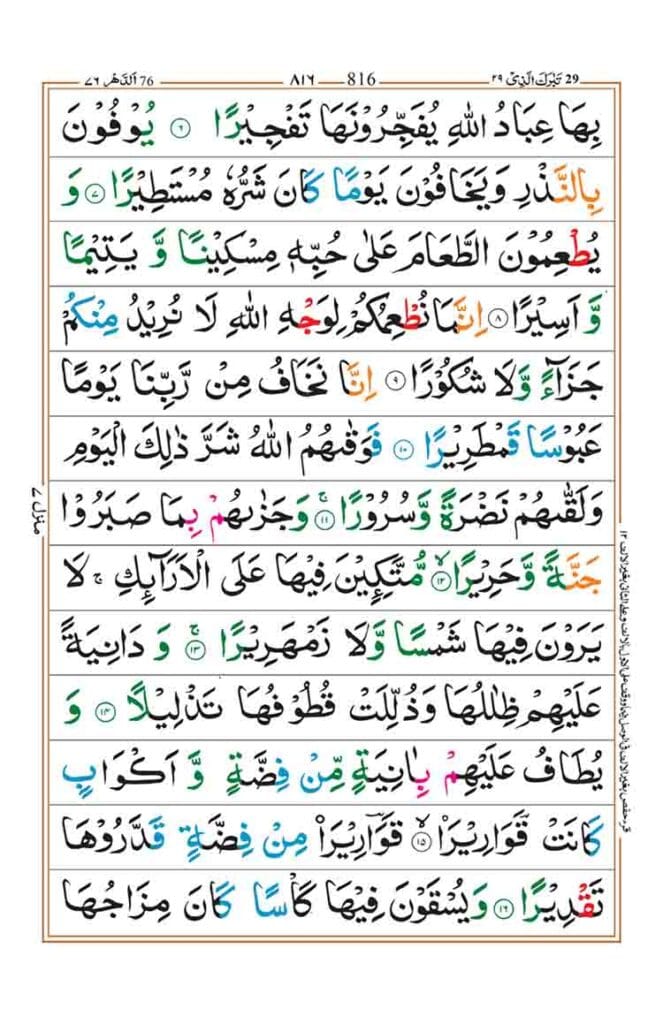 29 تَبٰرَكَ الَّذِىْ ٢٩ 816 ٨١٦ 76 اَلدَّهْر ٧٦
بِهَا عِبَادُ اللّٰهِ يُفَجِّرُوْنَهَا تَفْجِيْرًا ﴿٦﴾ يُوْفُوْنَ
بِالنَّذْرِ وَيَخَافُوْنَ يَوْمًا كَانَ شَرُّهٗ مُسْتَطِيْرًا ﴿٧﴾ وَ
يُطْعِمُوْنَ الطَّعَامَ عَلٰى حُبِّهٖ مِسْكِيْنًا وَّ يَتِيْمًا
وَّ اَسِيْرًا ﴿٨﴾ اِنَّمَا نُطْعِمُكُمْ لِوَجْهِ اللّٰهِ لَا نُرِيْدُ مِنْكُمْ
جَزَآءً وَّلَا شُكُوْرًا ﴿٩﴾ اِنَّا نَخَافُ مِنْ رَّبِّنَا يَوْمًا
عَبُوْسًا قَمْطَرِيْرًا ﴿١٠﴾ فَوَقٰىهُمُ اللّٰهُ شَرَّ ذٰلِكَ الْيَوْمِ
وَلَقّٰىهُمْ نَضْرَةً وَّسُرُوْرًا ۚ﴿١١﴾ وَجَزٰىهُمْ بِمَا صَبَرُوْا
جَنَّةً وَّحَرِيْرًا ۙ﴿١٢﴾ مُّتَّكِـِٕيْنَ فِيْهَا عَلَى الْاَرَآئِكِ ۚ لَا
يَرَوْنَ فِيْهَا شَمْسًا وَّلَا زَمْهَرِيْرًا ۚ﴿١٣﴾ وَ دَانِيَةً
عَلَيْهِمْ ظِلٰلُهَا وَذُلِّلَتْ قُطُوْفُهَا تَذْلِيْلًا ﴿١٤﴾ وَ
يُطَافُ عَلَيْهِمْ بِاٰنِيَةٍ مِّنْ فِضَّةٍ وَّ اَكْوَابٍ
كَانَتْ قَوَارِيْرَا۟ ۙ﴿١٥﴾ قَوَارِيْرَا۟ مِنْ فِضَّةٍ قَدَّرُوْهَا
تَقْدِيْرًا ﴿١٦﴾ وَيُسْقَوْنَ فِيْهَا كَاْسًا كَانَ مِزَاجُهَا
منزل ٧